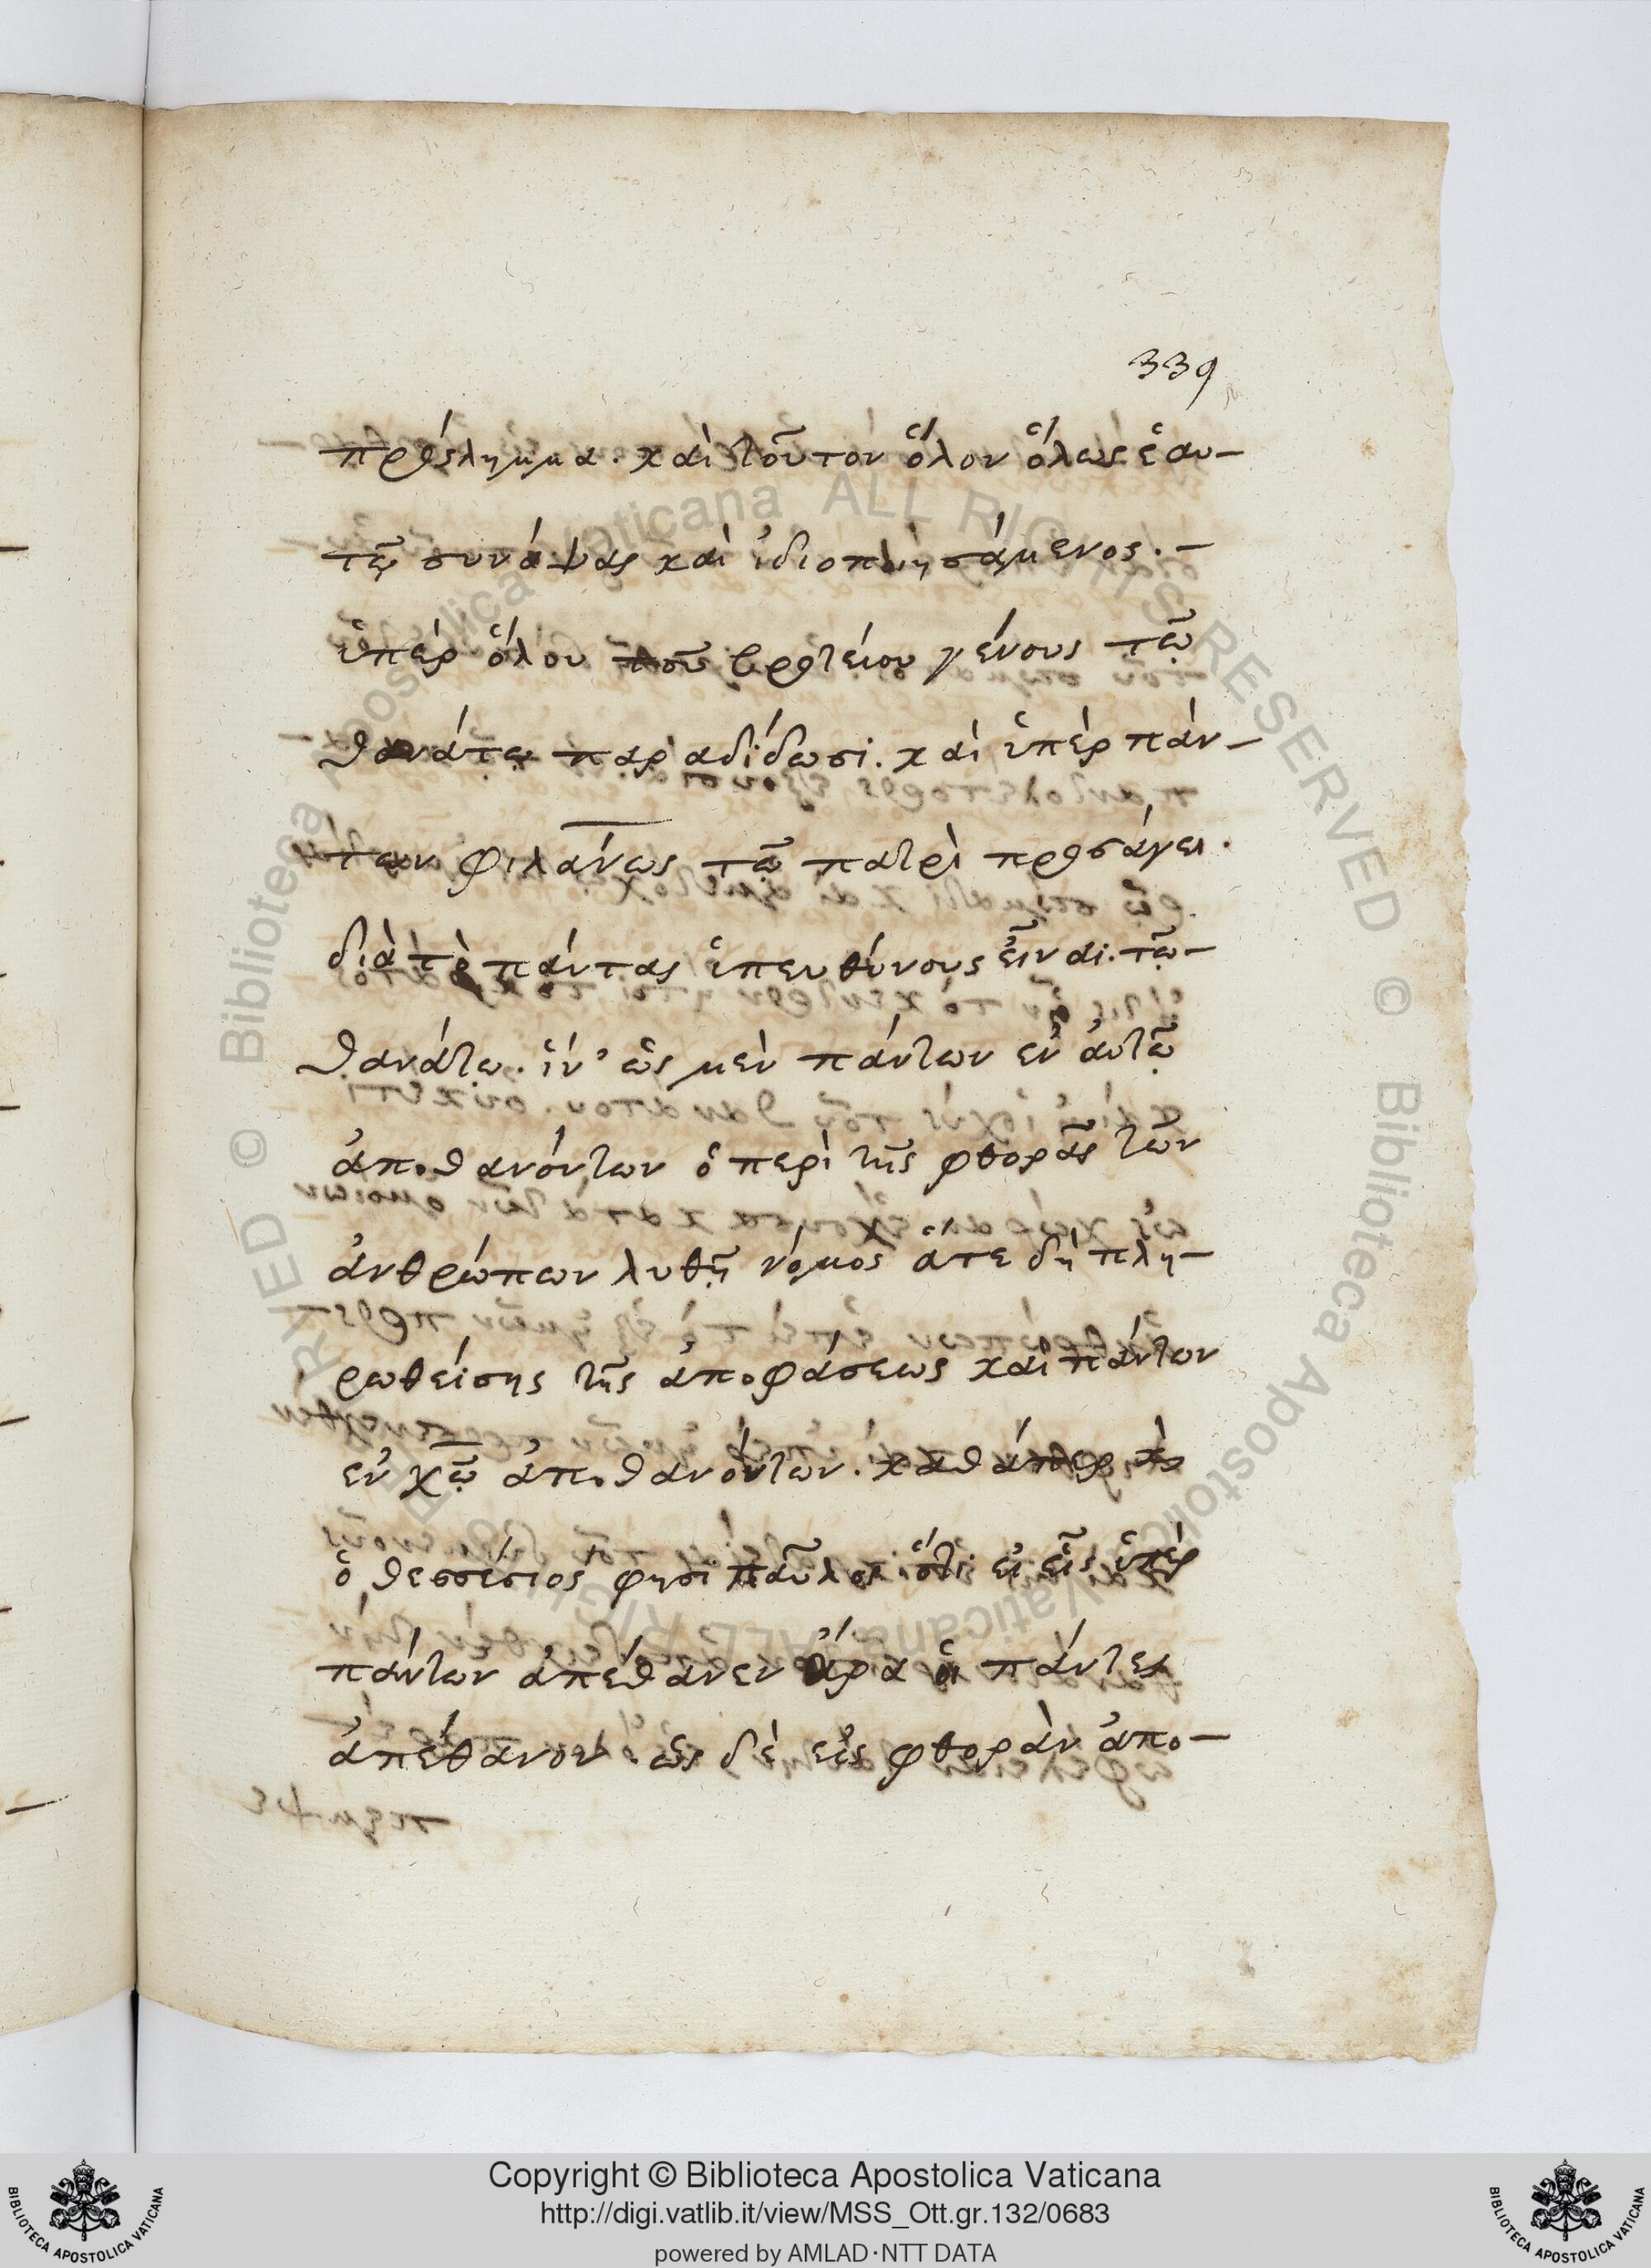 339
πρόσλημμα. καὶ τοῦτον ὅλον ὅλως ἑαυ-
τῷ συνάψας καὶ ἰδιοποιησάμενος. -
ὑπὲρ ὅλου τοῦ βροτείου γένους τῷ
θανάτῳ παραδίδωσι. καὶ ὑπὲρ πάν-
των φιλαν͞ως τῷ πατρὶ προσάγει.
διὰ τὸ πάντας ὑπευθύνους εἶναι. τῷ-
θανάτῳ. ἵν' ὡς μὲν πάντων ἐν αὐτῷ
ἀποθανόντων ὁ περὶ τῆς φθορᾶς τῶν
ἀνθρώπων λυθῇ νόμος ἅτε δὴ πλη-
ρωθείσης τῆς ἀποφάσεως καὶ πάντων
ἐν χ͞ῷ ἀποθανόντων. καθάπερ καὶ
ὁ θεσπέσιος φησὶ παῦλος. ὅτι εἰ εἷς ὑπὲρ
πάντων ἀπέθανεν ἄρα οἱ πάντες
ἀπέθανον. ὡς δὲ εἰς φθορὰν ἀπο-
Copyright © Biblioteca Apostolica Vaticana
http://digi.vatlib.it/view/MSS_Ott.gr.132/0683
powered by AMLAD·NTT DATA
BIBLIOTECA APOSTOLICA VATICANA
BIBLIOTECA APOSTOLICA VATICANA